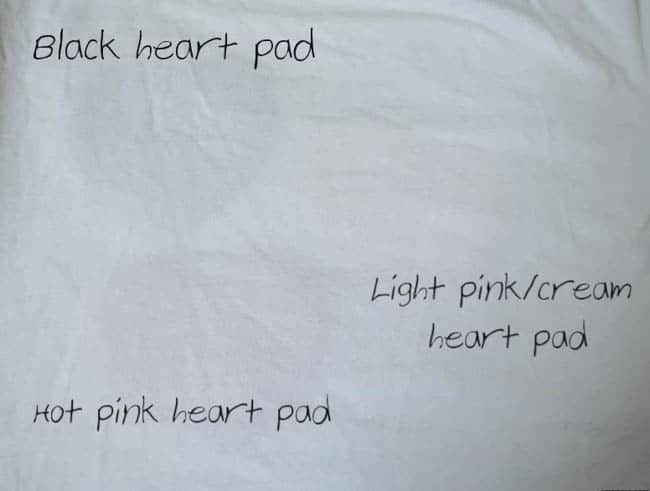 Black heart pad
Light pink/cream
heart pad
Hot pink heart pad